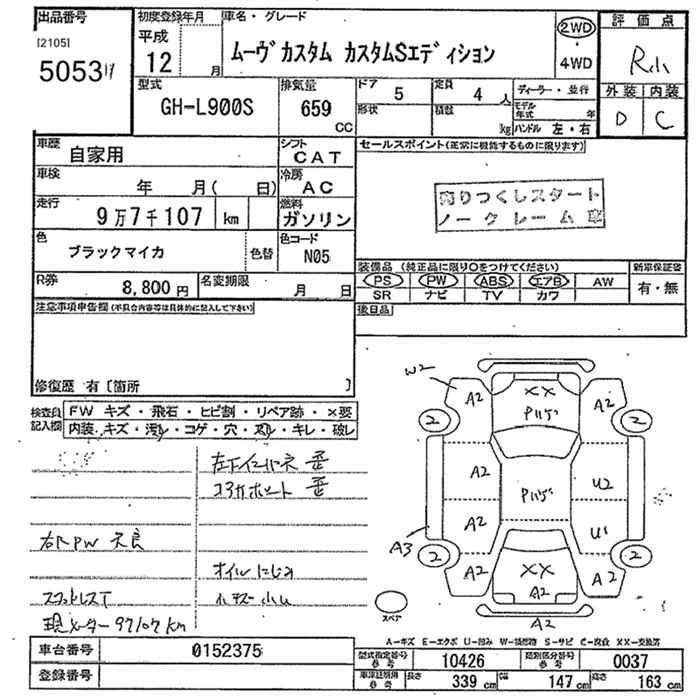 出品番号
[2105]
5053
初度登録年月
平成
12 月
車名・グレード
ムーヴカスタム カスタムSエディション
2WD
・
4WD
評価点
R
外装 内装
D C
型式
GH-L900S
排気量
659
CC
ドア 5
定員 4 人
形状
積載 kg
ディーラー・並行
モデル年式 年
ハンドル 左・右
車歴
自家用
シフト
CAT
セールスポイント(正常に機能するものに限ります)
売りつくしスタート
ノークレーム
車検
年 月( 日)
冷房
AC
走行
9万7千107 km
燃料
ガソリン
色
ブラックマイカ
色替
色コード
N05
装備品 (純正品に限り○をつけてください)
PS PW ABS エアB AW
SR ナビ TV カワ
新車保証書
有・無
R券
8,800円
名変期限
月 日
後日品
注意事項申告欄(不具合内容等は具体的に記入して下さい)
修復歴 有〔箇所 〕
検査員記入欄
FW キズ・飛石・ヒビ割・リペア跡・×要
内装、キズ・汚レ・コゲ・穴・スレ・キレ・破レ
歪
歪
右 PW 不良
オイルにじみ
現メーター 97107 km
W2
A2
XX
A2
2
2
A2
U2
A2
U1
A3
2
2
A2
XX
A2
A2
スペア
A2
A-キズ E-エクボ U-凹み W-補修跡 S-サビ C-腐食 XX-交換済
車台番号
0152375
登録番号
型式指定番号
参考
10426
類別区分番号
参考
0037
車庫証明用
参考
長さ 339 cm
幅 147 cm
高さ 163 cm